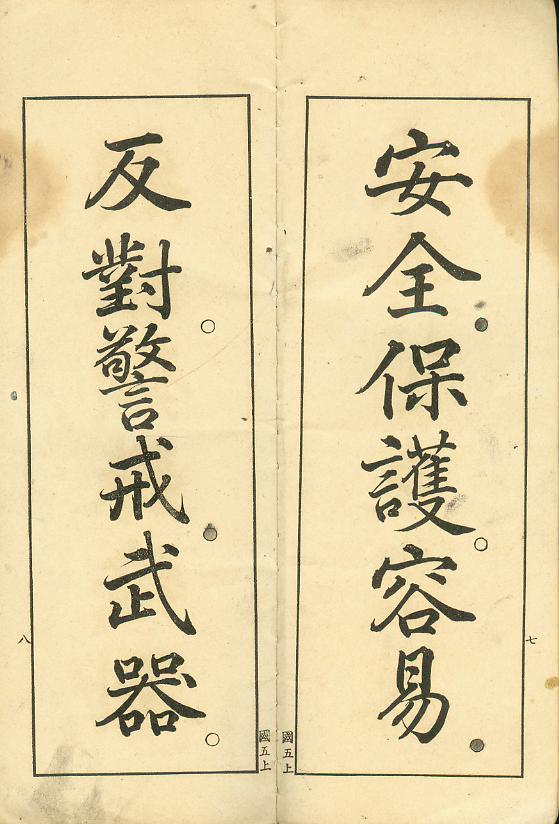 安全保護容易
七
國五上
國五上
反對警戒武器
八